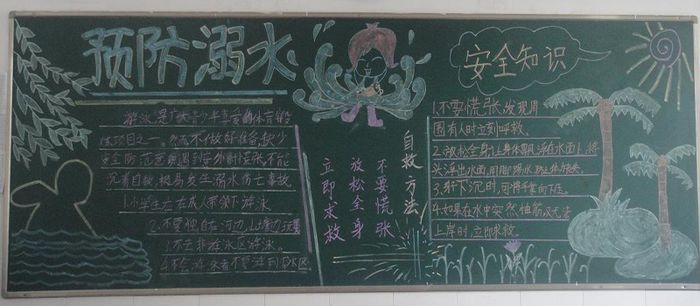 预防溺水
游泳是广大青少年喜爱的体育锻
炼项目之一。然而不做好准备、缺少
安全防范意识，遇到意外时慌张、不能
沉着自救，极易发生溺水伤亡事故。
1.小学生应在成人带领下游泳。
2.不要独自在河边、山塘边玩耍
3.不去非游泳区游泳。
4.不会游泳者不要游到深水区
自救方法！
不要慌张
放松全身
立即求救
安全知识
1.不要慌张，发现周
围有人时立刻呼救。
2.放松全身，让身体飘浮在水面上，将
头浮出水面，用脚踢水，防止体力丧失。
3.身体下沉时，可将手掌向下压。
4.如果在水中突然抽筋，又无法
上岸时，立即求救。